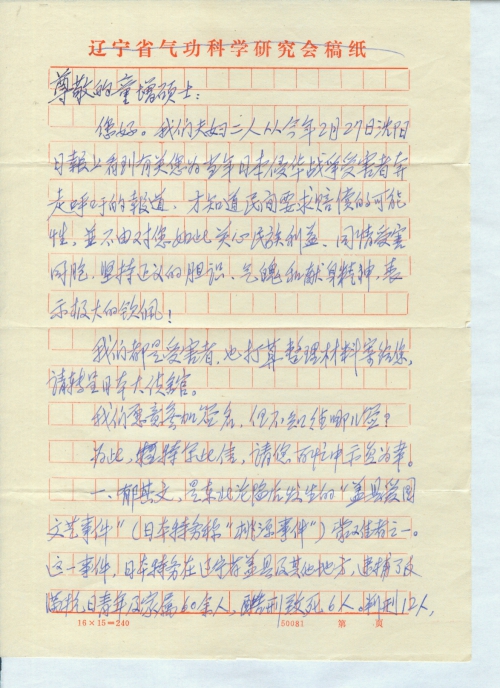 1
辽宁省气功科学研究会稿纸
尊敬的童增硕士：
您好。我们夫妇二人从今年2月27日沈阳
日报上看到有关您为当年日本侵华战争受害者奔
走呼吁的报道，才知道民间要求赔偿的可能
性，并不由对您如此关心民族利益、同情受害
同胞，坚持正议的胆识、气魄和献身精神，表
示极大的钦佩！
我们都是受害者，也打算整理材料寄给您，
请转呈日本大使馆。
我们愿意参加签名，但不知往哪儿签？
为此，特呈此信，请您百忙中示知为幸。
一、郁其文，是东北沦陷后发生的“盖县爱国
文艺事件”（日本特务称“桃源事件”）蒙难者之一。
这一事件，日本特务在辽宁省盖县及其他地方，逮捕了反
满抗日青年及家属60余人，酷刑致死6人。判刑12人，
16×15=240 50081 第 页